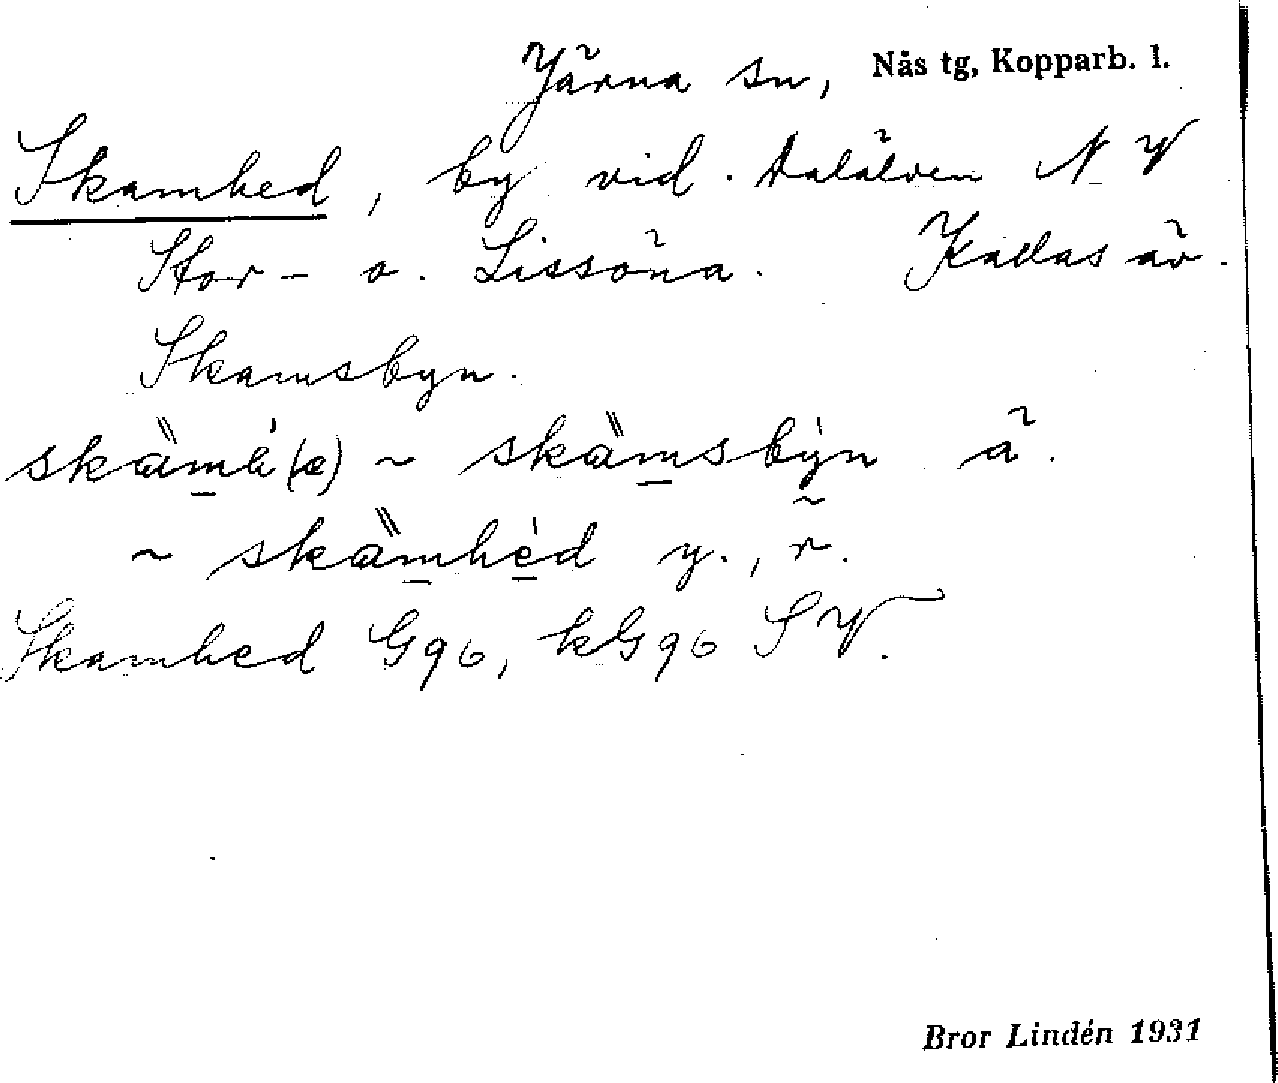 Järna sn, Nås tg, Kopparb. l.
Skamhed, by vid Dalälven NV
Stor- o. Lissöna. Kallas äv.
Skamsbyn.
skä̀mè(æ) ~ skä̀msby̍n ä.
~ skä̀mhe̍d y., r̃.
Skamhed G96, kG96 SV.
Bror Lindén 1931